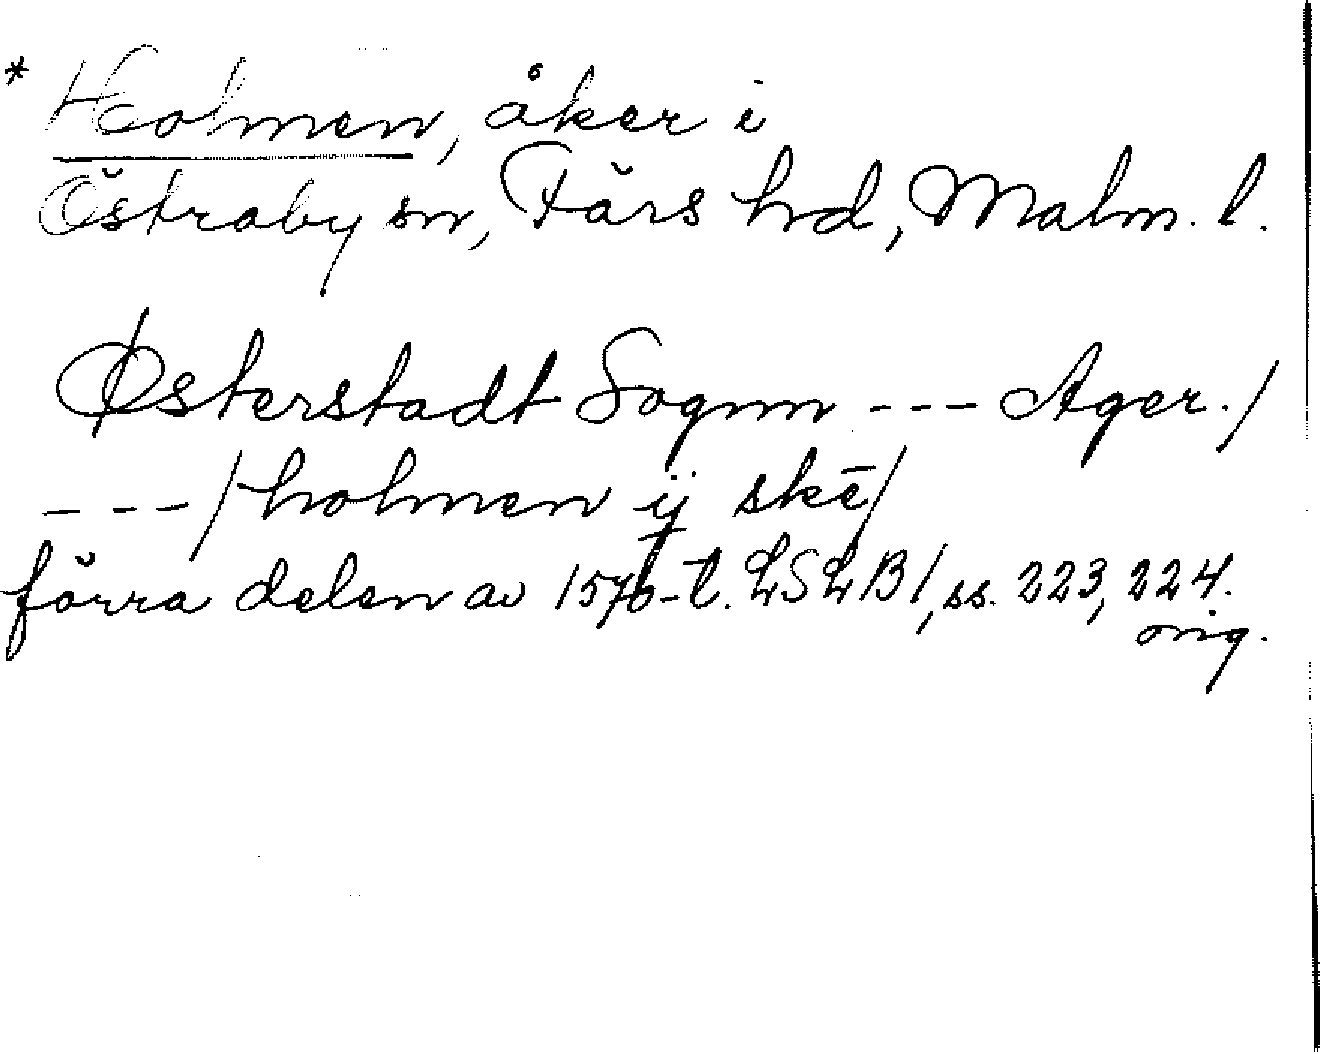 * Holmen, åker i
Östraby sn, Färs hd, Malm. l.
Østerstadt Sognn --- Ager./
---/holmen ij skē/
förra delen av 1570-t. LSLB1, ss. 223, 224.
orig.